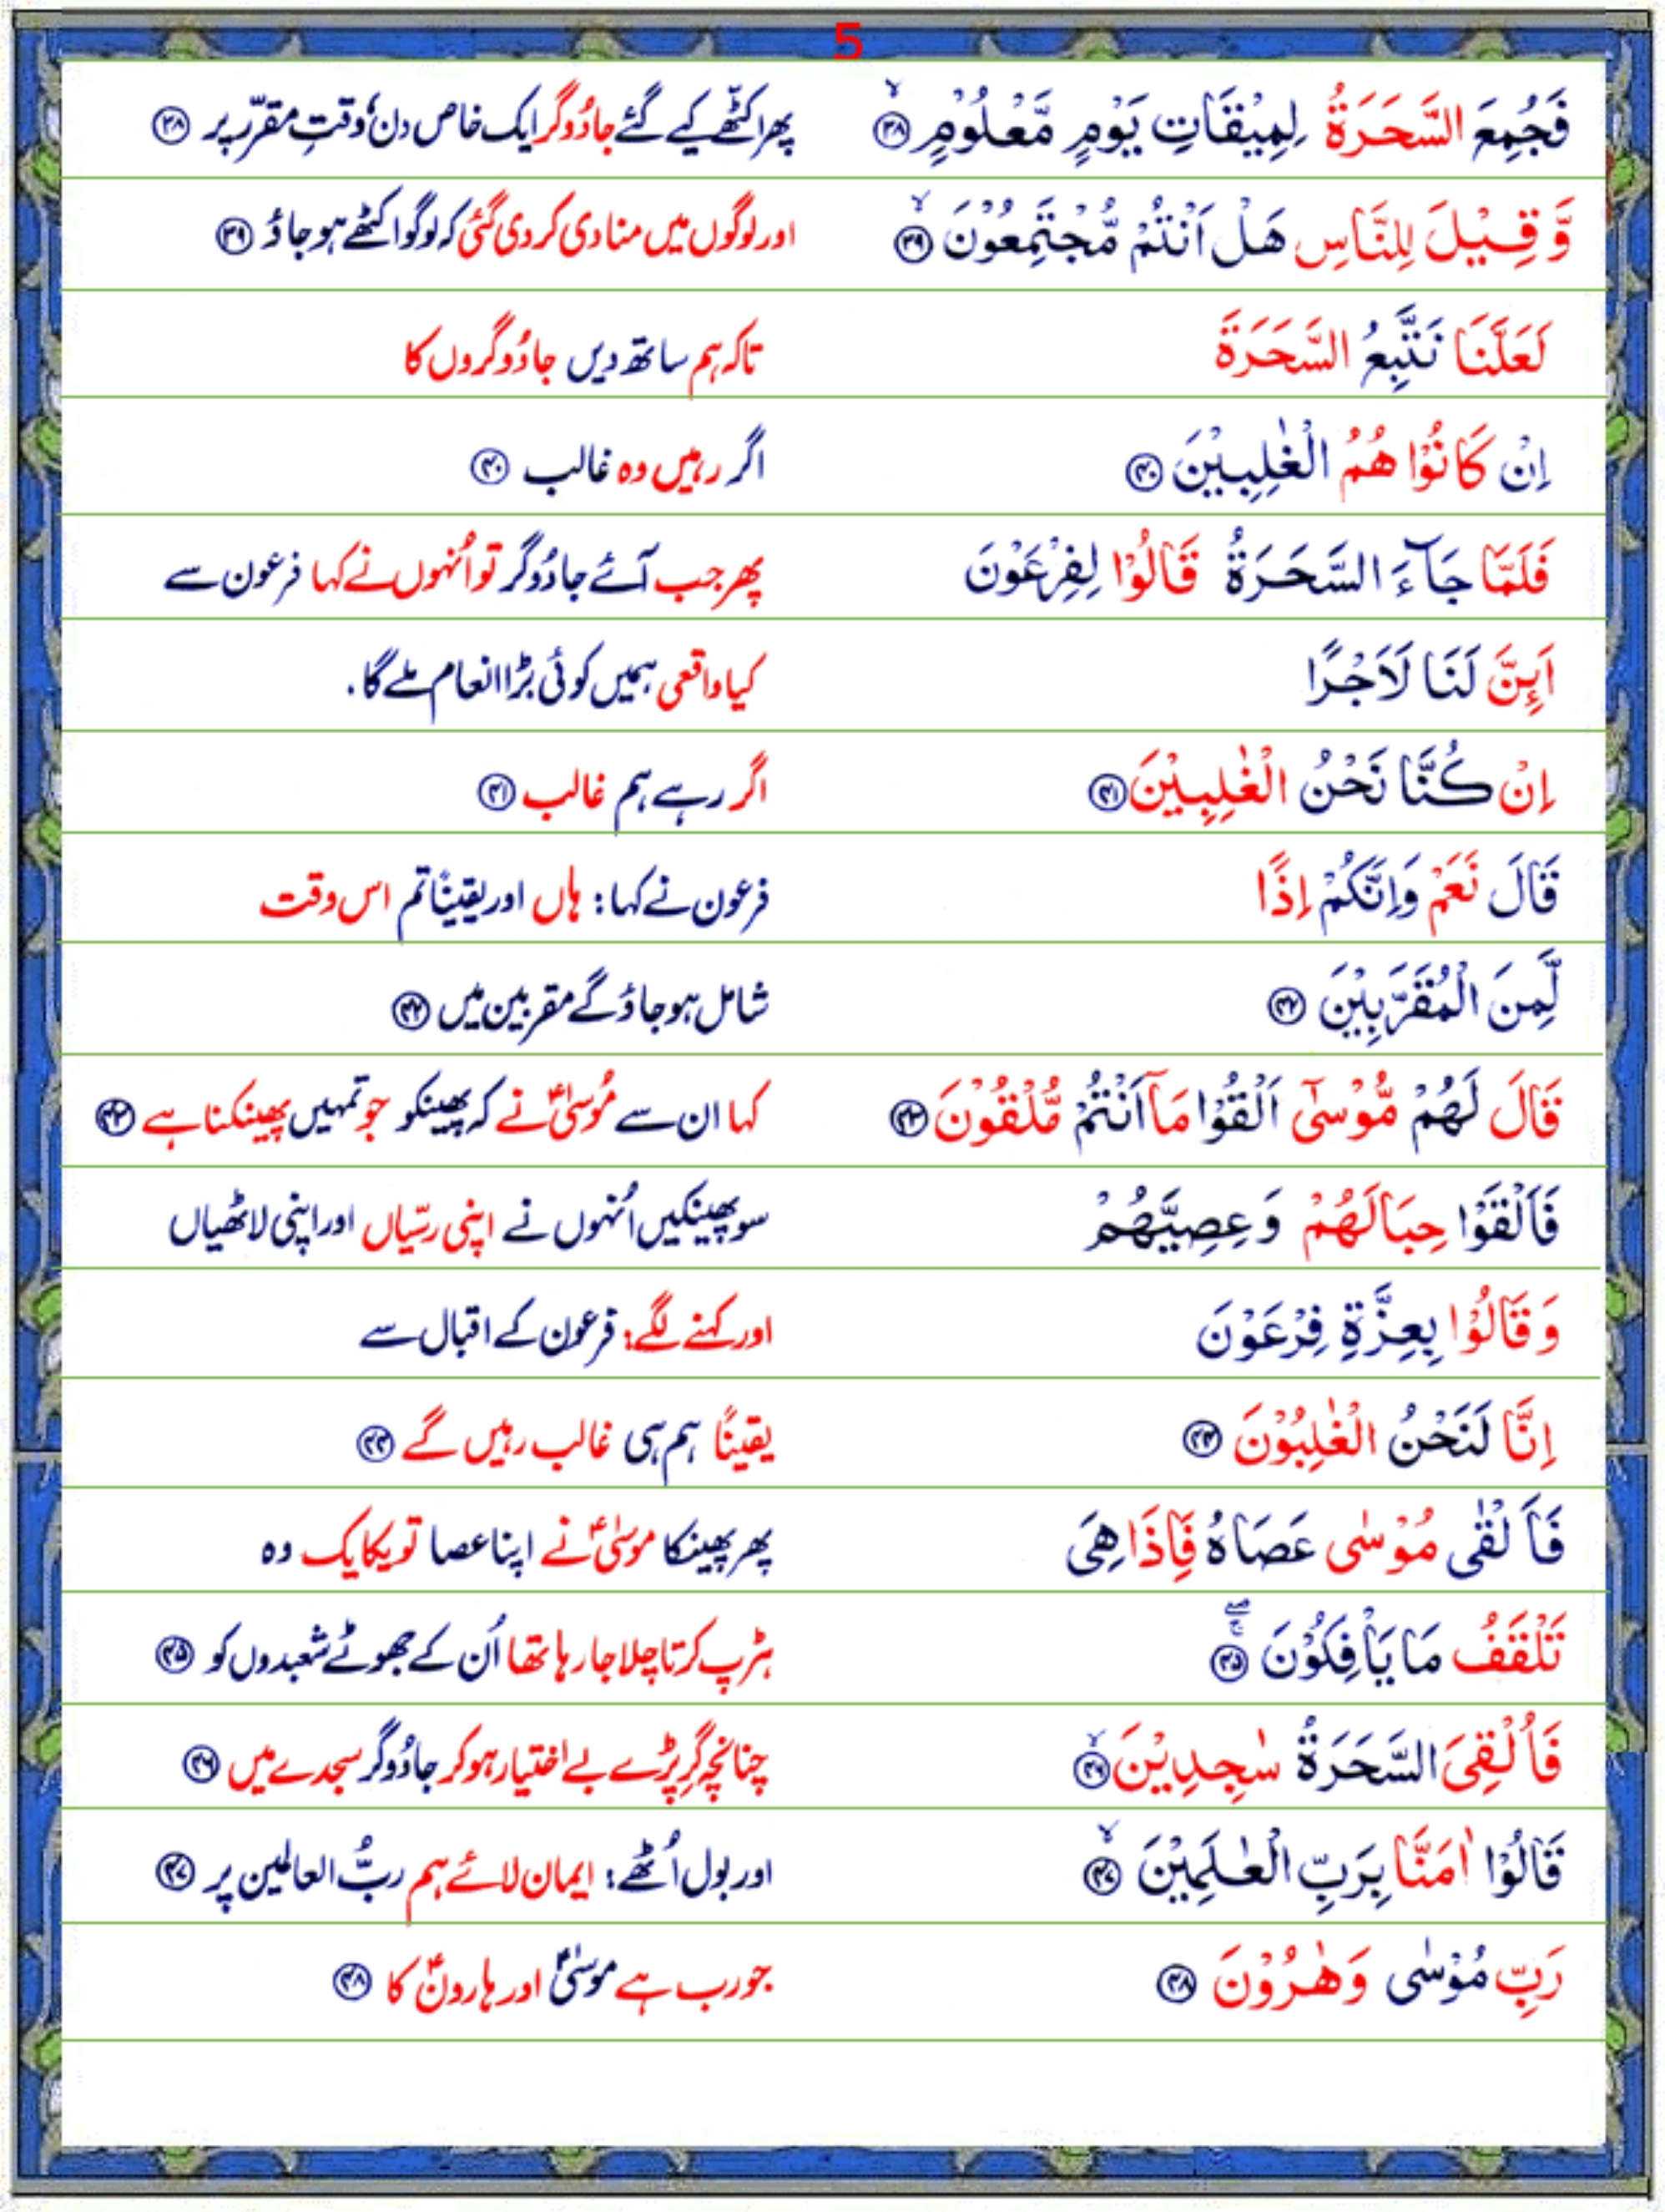 5
فَجُمِعَ السَّحَرَةُ لِمِيْقَاتِ يَوْمٍ مَّعْلُوْمٍ ۙ﴿۳۸﴾ پھر اکٹّھے کیے گئے جادُوگر ایک خاص دن، وقتِ مقرّر پر ﴿۳۸﴾
وَّ قِيْلَ لِلنَّاسِ هَلْ اَنْتُمْ مُّجْتَمِعُوْنَ ۙ﴿۳۹﴾ اور لوگوں میں منادی کر دی گئی کہ لوگو اکٹھے ہو جاؤ ﴿۳۹﴾
لَعَلَّنَا نَتَّبِعُ السَّحَرَةَ تاکہ ہم ساتھ دیں جادُوگروں کا
اِنْ كَانُوْا هُمُ الْغٰلِبِيْنَ ﴿۴۰﴾ اگر رہیں وہ غالب ﴿۴۰﴾
فَلَمَّا جَآءَ السَّحَرَةُ قَالُوْا لِفِرْعَوْنَ پھر جب آئے جادُوگر تو اُنہوں نے کہا فرعون سے
اَئِنَّ لَنَا لَاَجْرًا کیا واقعی ہمیں کوئی بڑا انعام ملے گا .
اِنْ كُنَّا نَحْنُ الْغٰلِبِيْنَ ﴿۴۱﴾ اگر رہے ہم غالب ﴿۴۱﴾
قَالَ نَعَمْ وَاِنَّكُمْ اِذًا فرعون نے کہا: ہاں اور یقینًا تم اس وقت
لَّمِنَ الْمُقَرَّبِيْنَ ﴿۴۲﴾ شامل ہو جاؤ گے مقربین میں ﴿۴۲﴾
قَالَ لَهُمْ مُّوْسٰٓى اَلْقُوْا مَآ اَنْتُمْ مُّلْقُوْنَ ﴿۴۳﴾ کہا ان سے مُوسٰیؑ نے کہ پھینکو جو تمہیں پھینکنا ہے ﴿۴۳﴾
فَاَلْقَوْا حِبَالَهُمْ وَعِصِيَّهُمْ سو پھینکیں اُنہوں نے اپنی رسّیاں اور اپنی لاٹھیاں
وَقَالُوْا بِعِزَّةِ فِرْعَوْنَ اور کہنے لگے: فرعون کے اقبال سے
اِنَّا لَنَحْنُ الْغٰلِبُوْنَ ﴿۴۴﴾ یقینًا ہم ہی غالب رہیں گے ﴿۴۴﴾
فَاَلْقٰى مُوْسٰى عَصَاهُ فَاِذَا هِىَ پھر پھینکا موسٰیؑ نے اپنا عصا تو یکایک وہ
تَلْقَفُ مَا يَاْفِكُوْنَ ﴿۴۵﴾ ہڑپ کرتا چلا جا رہا تھا اُن کے جھوٹے شعبدوں کو ﴿۴۵﴾
فَاُلْقِىَ السَّحَرَةُ سٰجِدِيْنَ ۙ﴿۴۶﴾ چنانچہ گِر پڑے بے اختیار ہو کر جادُوگر سجدے میں ﴿۴۶﴾
قَالُوْٓا اٰمَنَّا بِرَبِّ الْعٰلَمِيْنَ ۙ﴿۴۷﴾ اور بول اُٹھے: ایمان لائے ہم ربُّ العالمین پر ﴿۴۷﴾
رَبِّ مُوْسٰى وَهٰرُوْنَ ﴿۴۸﴾ جو رب ہے موسٰیؑ اور ہارونؑ کا ﴿۴۸﴾